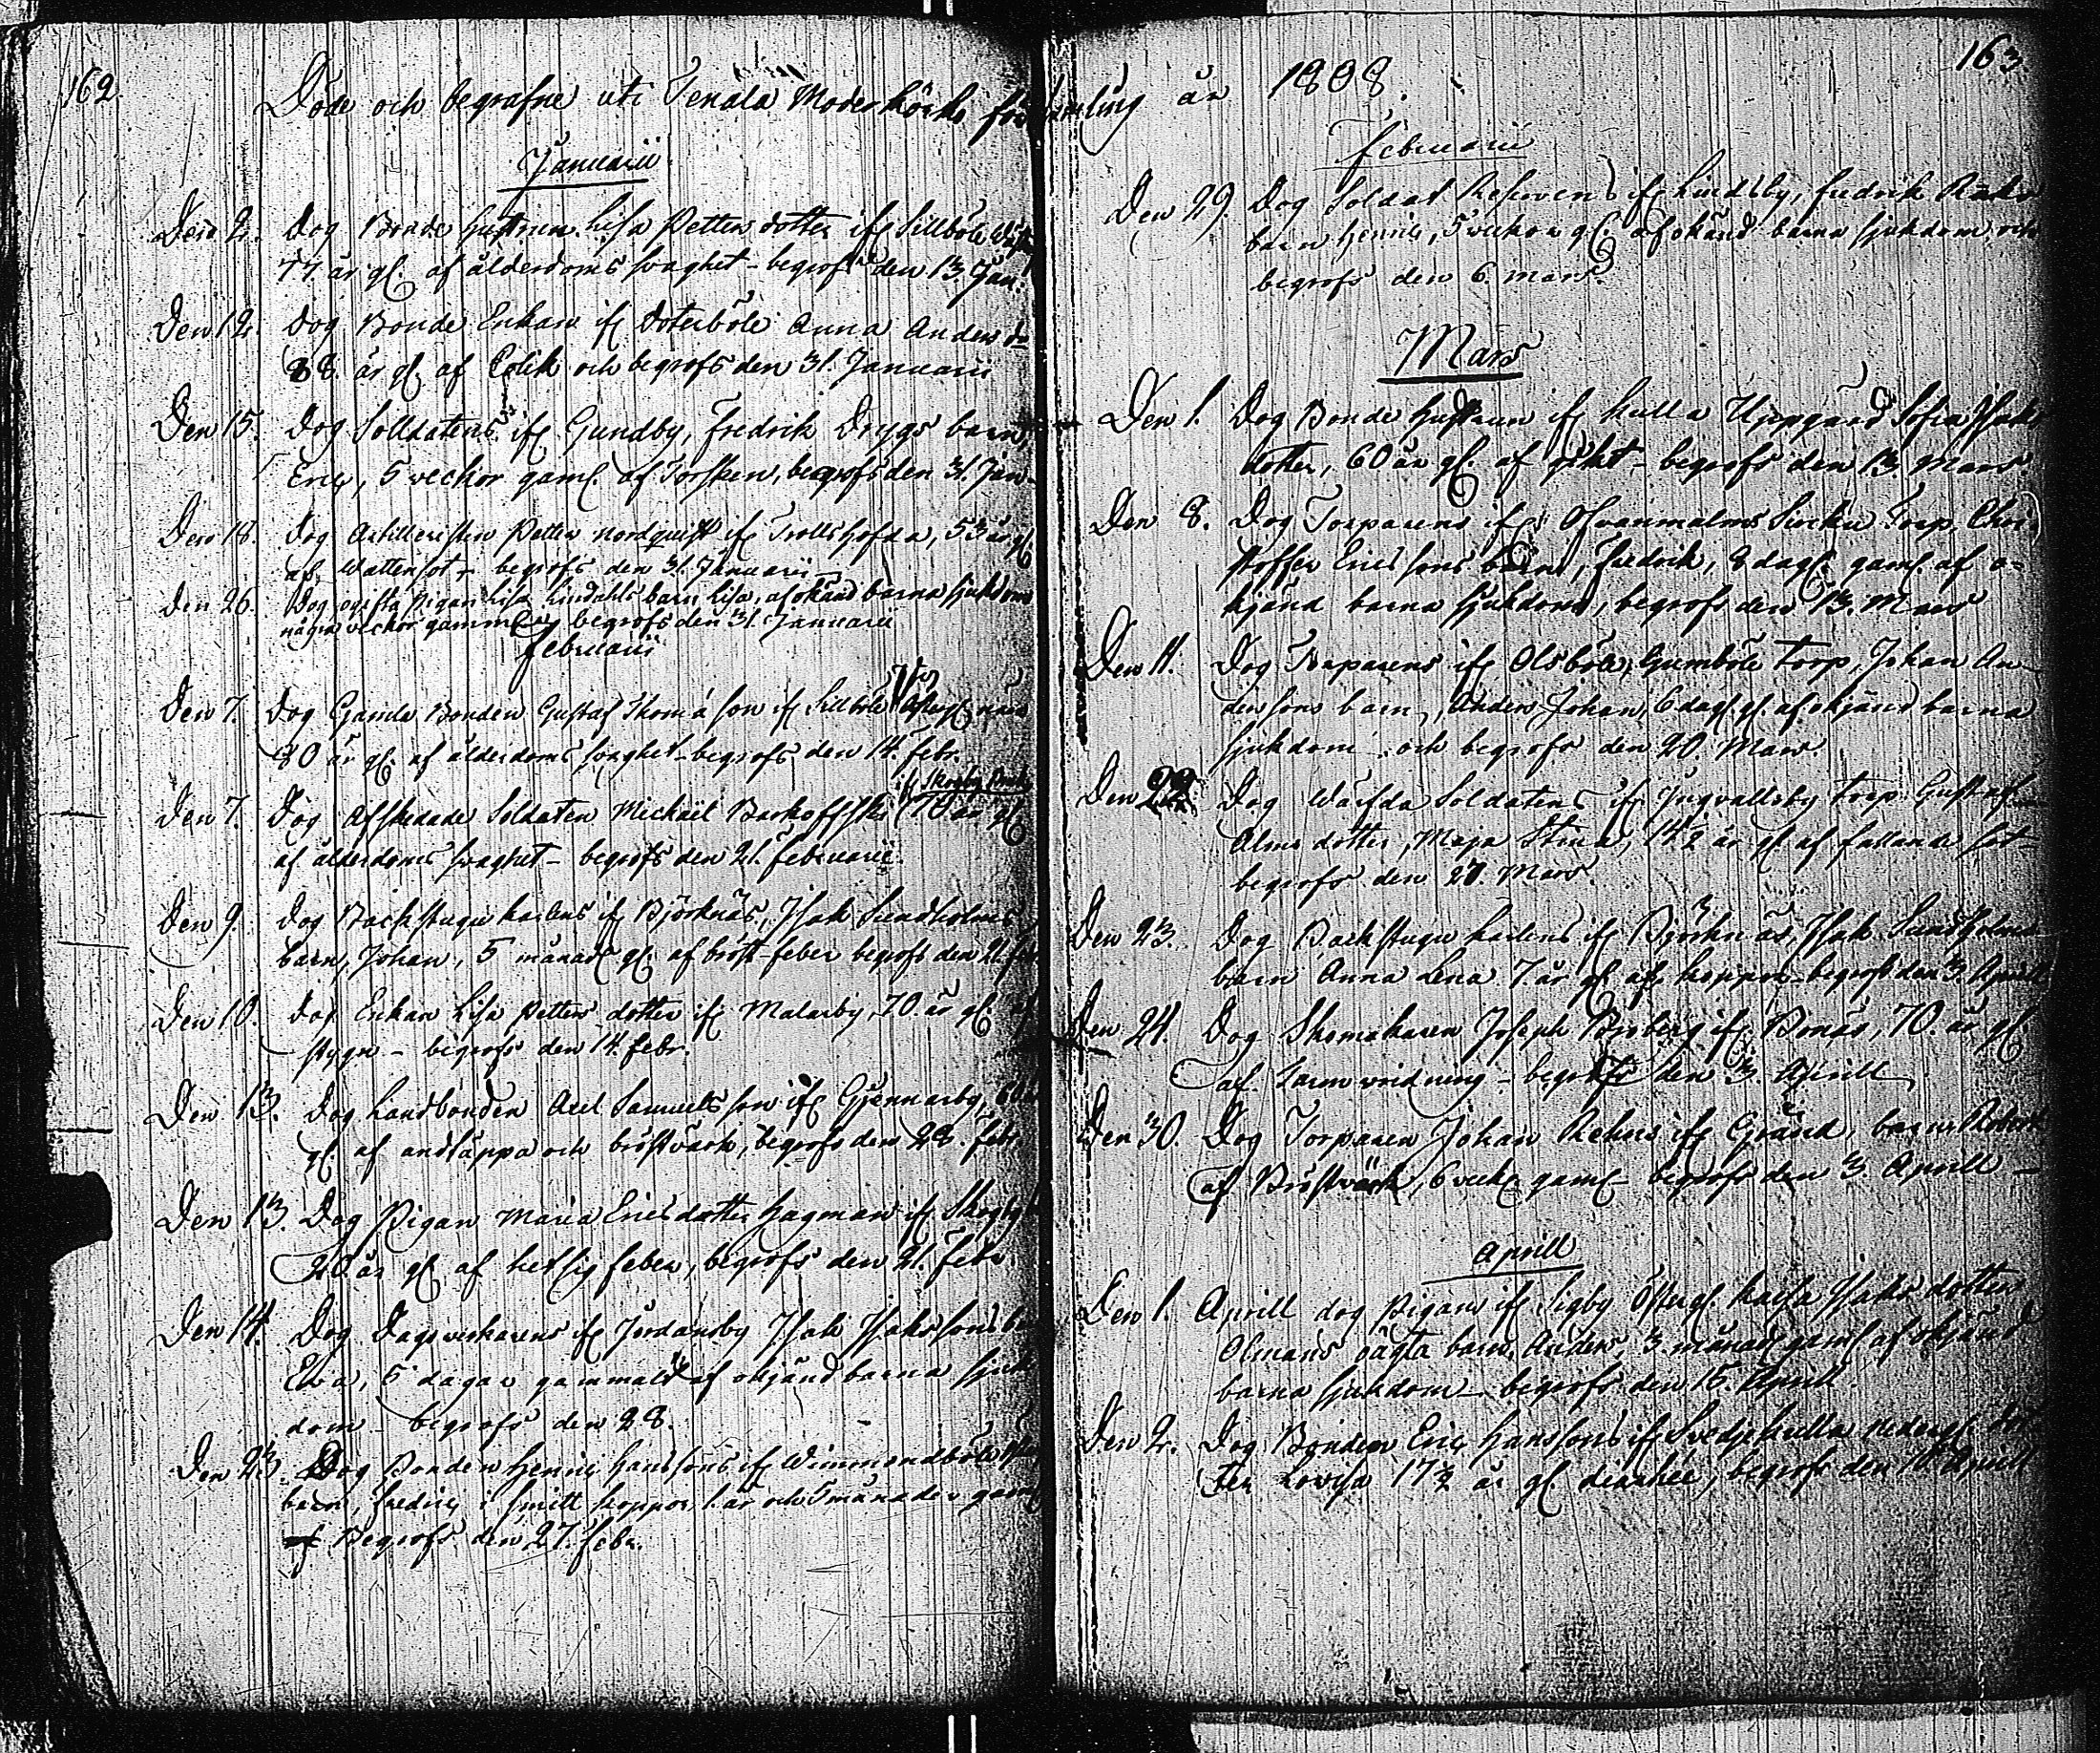 162
Döde och begrafne uti Tenala Moderkörko församling år 1808.
Januarii
Den 2. Dog Bonde Hustrun Lisa Petters dotter ifr Sillböle
77 år gl. af ålderdoms svaghet - begrofs den 13. Jan.
Den 12. Dog Bonde Enkan ifr Doterböle Anna Anders do
88. år gl. af Colik och begrofs den 31. Januarii
Den 15. Dog Solldatens ifr Gundby, Fredrik Drygs barn
Eric, 5 veckor gaml. af Torsken, begrofs den 31. Jan
Den 18. Dog Artilleristen Petter Nordquist ifr Trollshofda, 53 år gl
af Wattensot - begrofs den 31. Januarii
Den 26. Dog ogifta Pigan Lisa Lindahls barn Lisa, af okänd barna sjukdom
några veckor gammal begrofs den 31. Januarii
Februarii
Den 7. Dog Gamla Bonden Gustaf Thomasson ifr Sillböle
80 år gl. af ålderdoms svaghet - begrofs den 14. febr.
ifr Skogby
Den 7. Dog Afskedade Soldaten Michael Barkoffski 70 år gl
af ålderdoms svaghet - begrofs den 21. februarii.
Den 9. Dog Backstugu karlens ifr Björknäs, Isak Sundholms
barn, Johan, 5 månad gl. af bröst-feber begrofs den 21. feb
Den 10. Dog Enkan Lisa Petters dotter ifr Malarby, 70. år gl. af
stygn - begrofs den 14. febr.
Den 13. Dog Landbonden Axel Samuelsson ifr Gjennarby, 60
gl. af andtäppa och bröstvärk, begrofs den 28. febr
Den 13. Dog Pigan Maria Erics dotter Hagman ifr Skogby
20 år gl. af hetsig feber, begrofs den 21. febr
Den 14. Dog Dagsverkarens ifr Jordansby Isak Isakssons ba
Eva, 5 dagar gammalt af okjänd barna sjuk
dom begrofs den 28.
Den 23. Dog Bonden Henric Hanssons ifr Wimmondböle
barn, Fredric i smitt koppor, 1. år och 5 månader gam
Begrofs den 27. febr.
163
Februarii
Den 29. Dog Soldat Reservens ifr Lindsby, Fredrik
barn Henric, 5 veckor gl. af okänd barna sjukdom, och
begrofs den 6. Mars.
Mars
Den 1. Dog Bonde Hustrun ifr Kulla Uppgård Sofia Isaks
dotter, 60 år gl. af gikt - begrofs den 13. Mars
Den 8. Dog Torparens ifr Olsvanmalms Torp, Chri
stoffer Ericssons barn, Fredrik, 8 dag. gaml. af o-
kjänd barna sjukdom, begrofs den 13. Mars
Den 11. Dog Torparens ifr Olsböle, Gumböle torp, Johan An
derssons barn, Anders Johan, 6 dag. gl. af okjänd barna
sjukdom och begrofs den 20. Mars
Den 22. Dog Wärfda Soldatens ifr Yngvallsby torp Gustaf
Alms dotter, Maja Stina, 14½ år gl. af fallande sot
begrofs den 27. Mars.
Den 23. Dog Backstugu karlens ifr Björknäs, Isak Sundholms
barn Anna Lena 7. år gl. af koppor - begrofs den 3. Aprill
Den 24. Dog Skomakaren Joseph Broberg ifr Bonäs, 70. år gl
af Tarmvridning - begrofs den 3. Aprill
Den 30. Dog Torparen Johan Rehns ifr Gränd, barn Robert
af Bröstvärk, 6 veck. gaml. begrofs den 3. Aprill
Aprill
Den 1. Aprill dog Pigans ifr Sigby Österg. Kaisa Isaks dotter
Olmans oägta barn, Anders, 3. månad gaml. af okjänd
barna sjukdom - begrofs den 15. Aprill
Den 2. Dog Bonden Eric Hanssons ifr Svedjekulla Nederg. dot
ter Lovisa 17½ år gl. diarrhee, begrofs den 10 Aprill